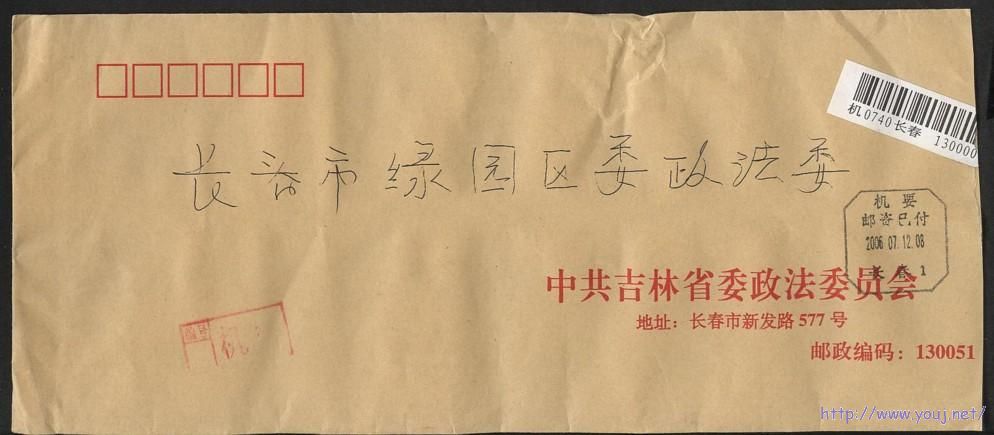 机0740长春 130000
长春市绿园区委政法委
机要
邮资已付
2006.07.12.08
长春1
中共吉林省委政法委员会
地址：长春市新发路577号
邮政编码：130051
编号
http://www.youj.net/